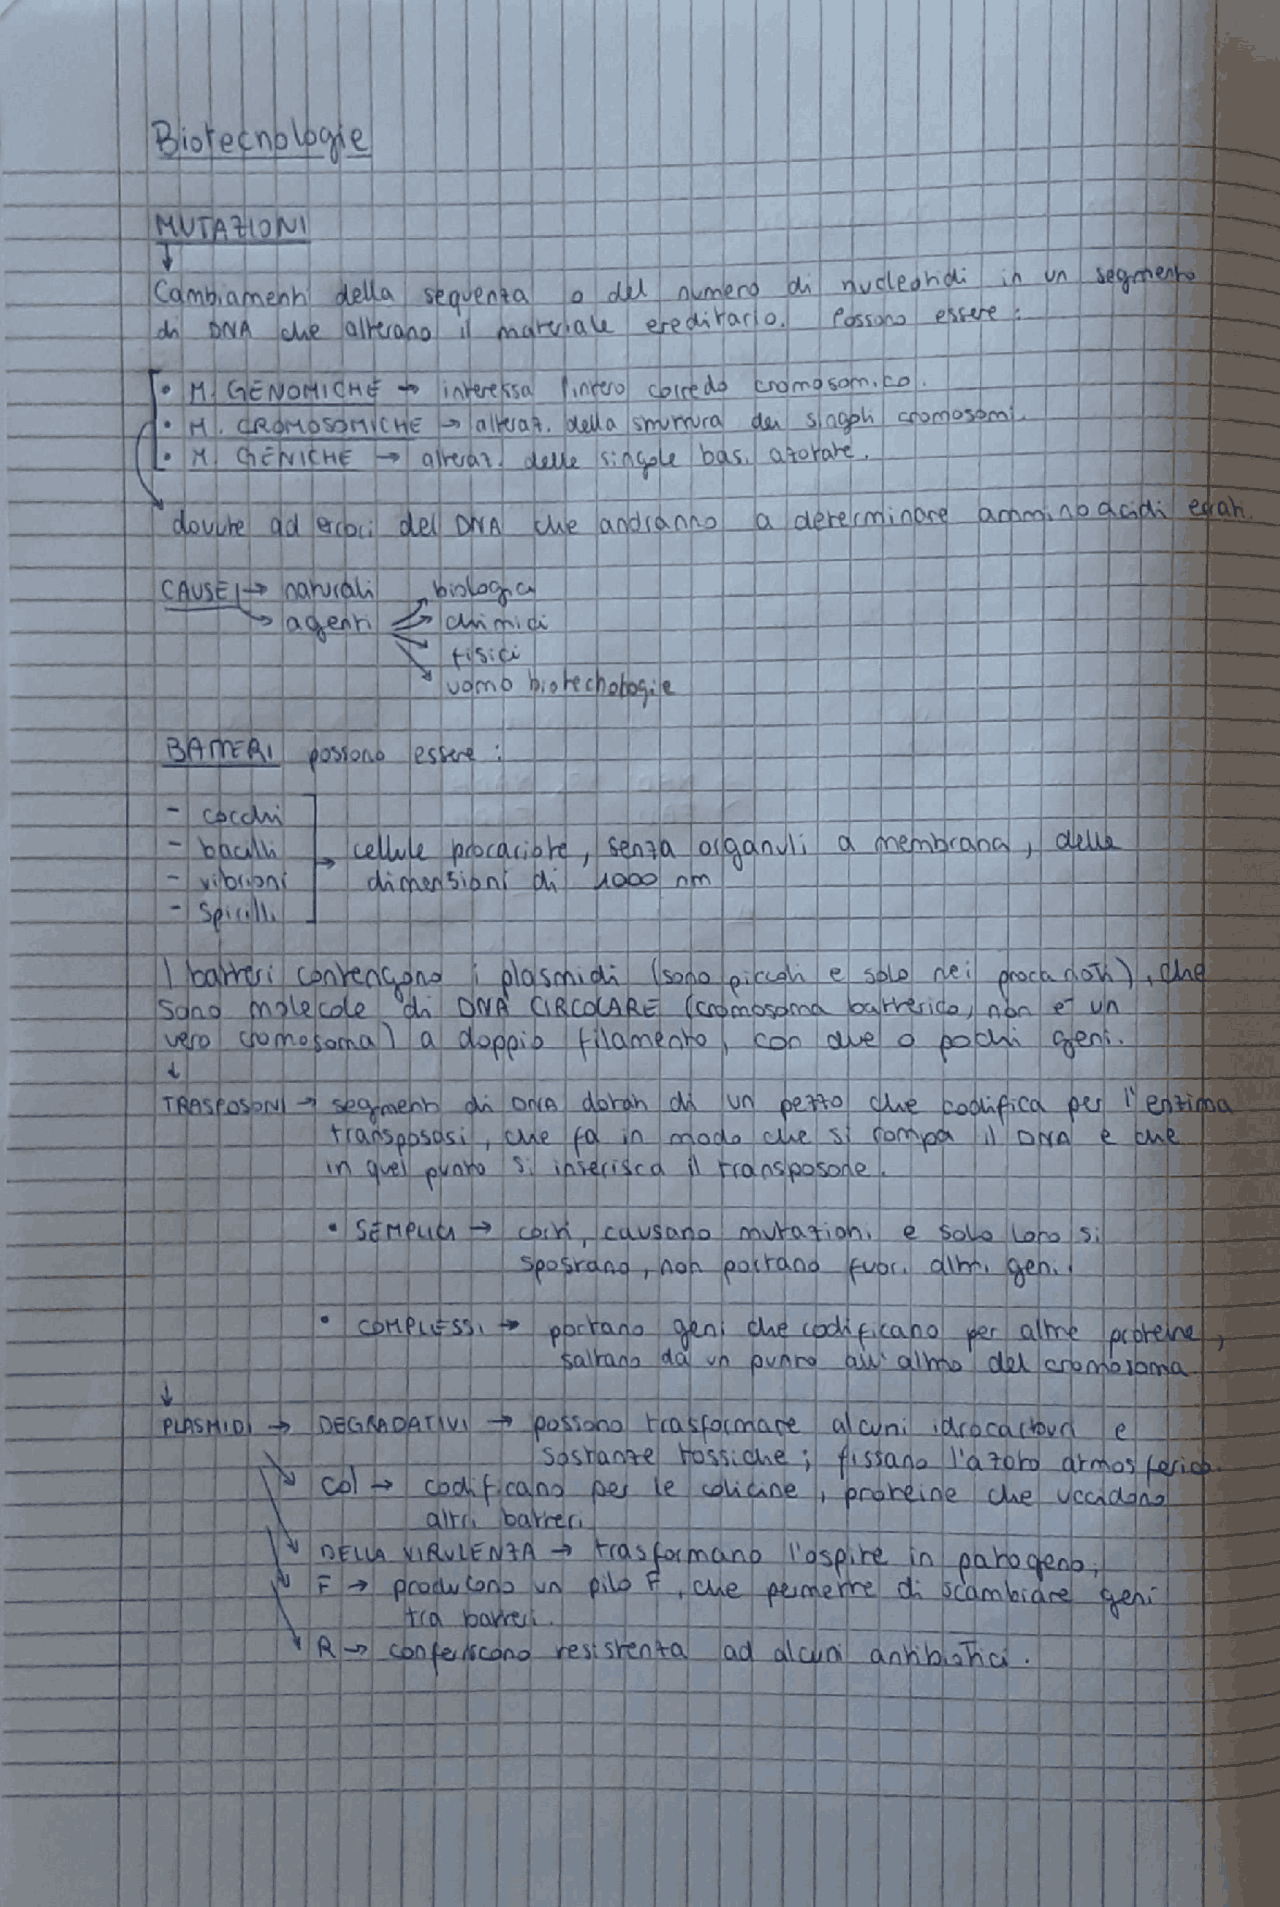 Biotecnologie
MUTAZIONI
↓
Cambiamenti della sequenza o del numero di nucleotidi in un segmento
di DNA che alterano il materiale ereditario. Possono essere:
• M. GENOMICHE → interessa l'intero corredo cromosomico.
• M. CROMOSOMICHE → alteraz. della struttura dei singoli cromosomi.
• M. GENICHE → alteraz. delle singole basi azotate.
dovute ad errori del DNA che andranno a determinare amminoacidi errati.
CAUSE → naturali biologici
→ agenti → chimici
fisici
uomo biotecnologie
BATTERI possono essere:
- cocchi
- bacilli → cellule procariote, senza organuli a membrana, delle
- vibrioni dimensioni di 1000 nm
- spirilli
I batteri contengono i plasmidi (sono piccoli e solo nei procarioti), che
sono molecole di DNA CIRCOLARE (cromosoma batterico, non è un
vero cromosoma) a doppio filamento, con due o pochi geni.
↓
TRASPOSONI → segmenti di DNA dotati di un pezzo che codifica per l'enzima
transposasi, che fa in modo che si rompa il DNA e che
in quel punto si inserisca il transposone.
• SEMPLICI → corti, causano mutazioni e solo loro si
spostano, non portano fuori altri geni.
• COMPLESSI → portano geni che codificano per altre proteine,
saltano da un punto all'altro del cromosoma.
↓
PLASMIDI → DEGRADATIVI → possono trasformare alcuni idrocarburi e
sostanze tossiche; fissano l'azoto atmosferico.
Col → codificano per le colicine, proteine che uccidono
altri batteri.
DELLA VIRULENZA → trasformano l'ospite in patogeno;
F → producono un pilo F, che permette di scambiare geni
tra batteri.
R → conferiscono resistenza ad alcuni antibiotici.